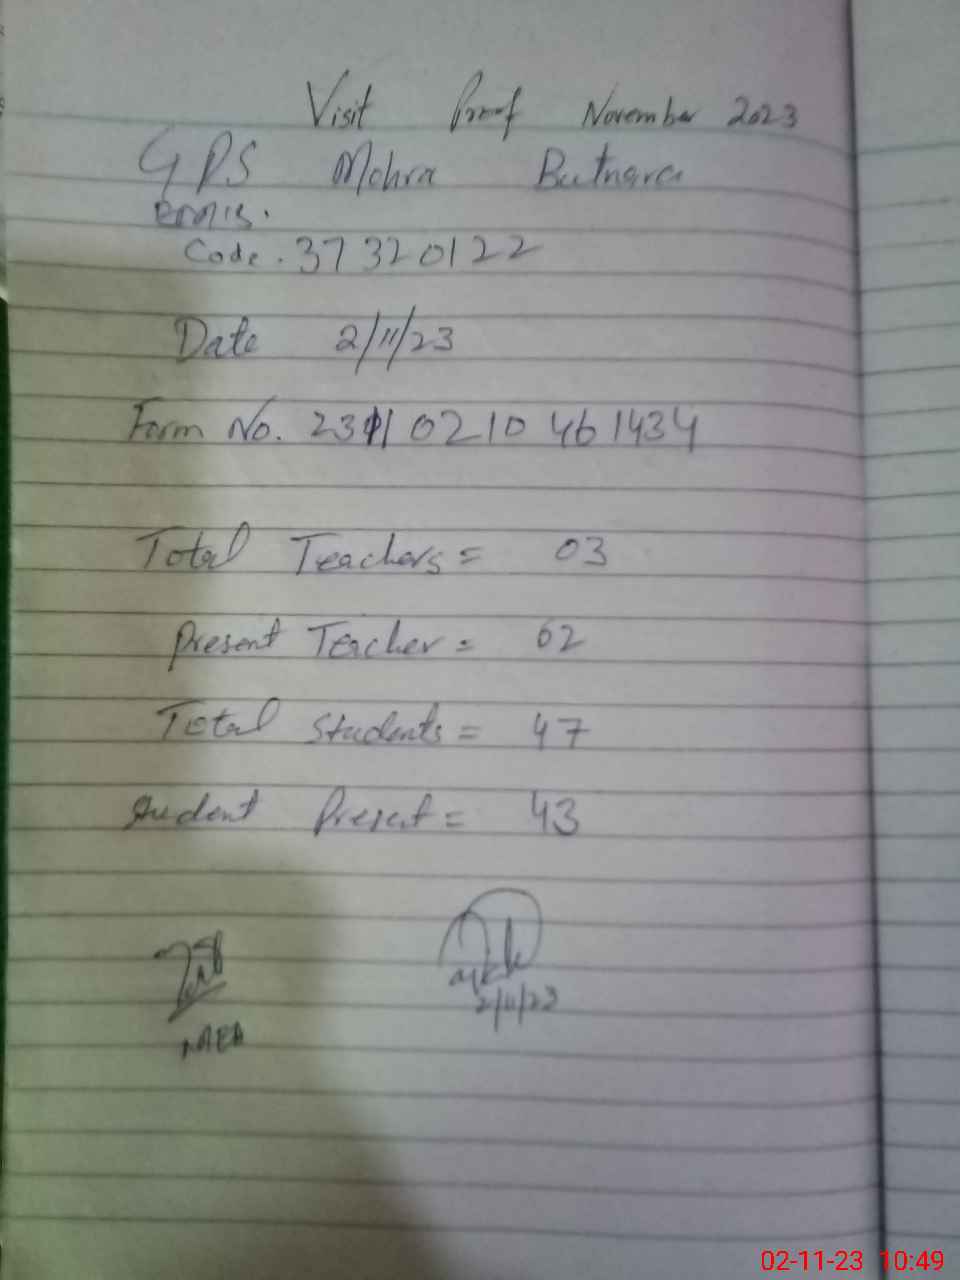 Visit Proof November 2023
GPS Mohra Butnara
EMIS.
Code. 37320122
Date 2/11/23
Form No. 2311 0210 461434
Total Teachers = 03
Present Teacher = 02
Total Students = 47
Student Present = 43
2/11/23
MEA
02-11-23 10:49